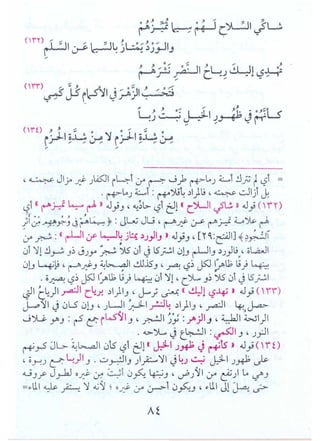 شَاكِي السِّلَاحِ لَهُمْ سِيمَا تُمَيِّزُهُمْ
والوَرْدُ يَمْتَازُ بِالسِّيمَا عَنِ السَّلَمِ (١٣٢)
تُهْدِي إِلَيْكَ رِيَاحُ النَّصْرِ نَشْرَهُمُ
فَتَحْسَبُ الزَّهْرَ فِي الأَكْمَامِ كُلَّ كَمِي (١٣٣)
كَأَنَّهُمْ فِي ظُهُورِ الخَيْلِ نَبْتُ رُباً
مِنْ شِدَّةِ الحَزْمِ لَا مِنْ شِدَّةِ الحُزُمِ (١٣٤)
= أي لم تترك أسنة رماحهم طرف جسم من أجسام الكفار غير مزال عجمته ،
بل أزالت عجمته ، فالمراد بأقلامهم : أسنة رماحهم .
(١٣٢) قوله « شاكي السلاح » إلخ أي حاديه ، وقوله « لهم سيما تميزهم » أي
لهم علامة تميزهم عن غيرهم ، قال تعالى : ﴿سِيمَاهُمْ فِي وُجُوهِهِم مِّنْ أَثَرِ
السُّجُودِ﴾ [الفتح:٢٩] ، وقوله « والورد يمتاز بالسيما عن السلم » : شجر من
العضاة ، فالورد والسلم وإن اشتركا في أن كلاً شجرٌ مورق ذو شوك إلا أن
بينهما فرقًا ظاهرًا لكل ذي بصر ، وكذلك الصحابة وغيرهم ، فإنهما وإن
اشتركا في أن كلاً ذو سلاح ، إلا أن بينهما فرقًا ظاهرًا لكل ذي بصيرة .
(١٣٣) قوله « تهدي إليك » بمعنى ترسل ، والمراد برياح النصر الرياح التي
حصل بها النصر ، والمراد بالنشر الخبر السار ، وإن كان في الأصل
الرائحة الطيبة ، والزهر : نَوْرُ الشجر ، والأكمام جمع كم : وهو غلاف
النور ، والكمي : الشجاع في سلاحه .
(١٣٤) قوله « كأنهم في ظهور الخيل » إلخ أي كأن الصحابة حال كونهم
على ظهور الخيل نبت ربا في الاستقرار والثبوت . والربا جمع ربوة ،
وهي ما ارتفع من الأرض ، ونبتها يكون أثبت من غيره لطول عروقه
حتى يصل إلى الماء ، ويكون أحسن من غيره ؛ لأنه لا يستقر عليه الماء=
٨٤